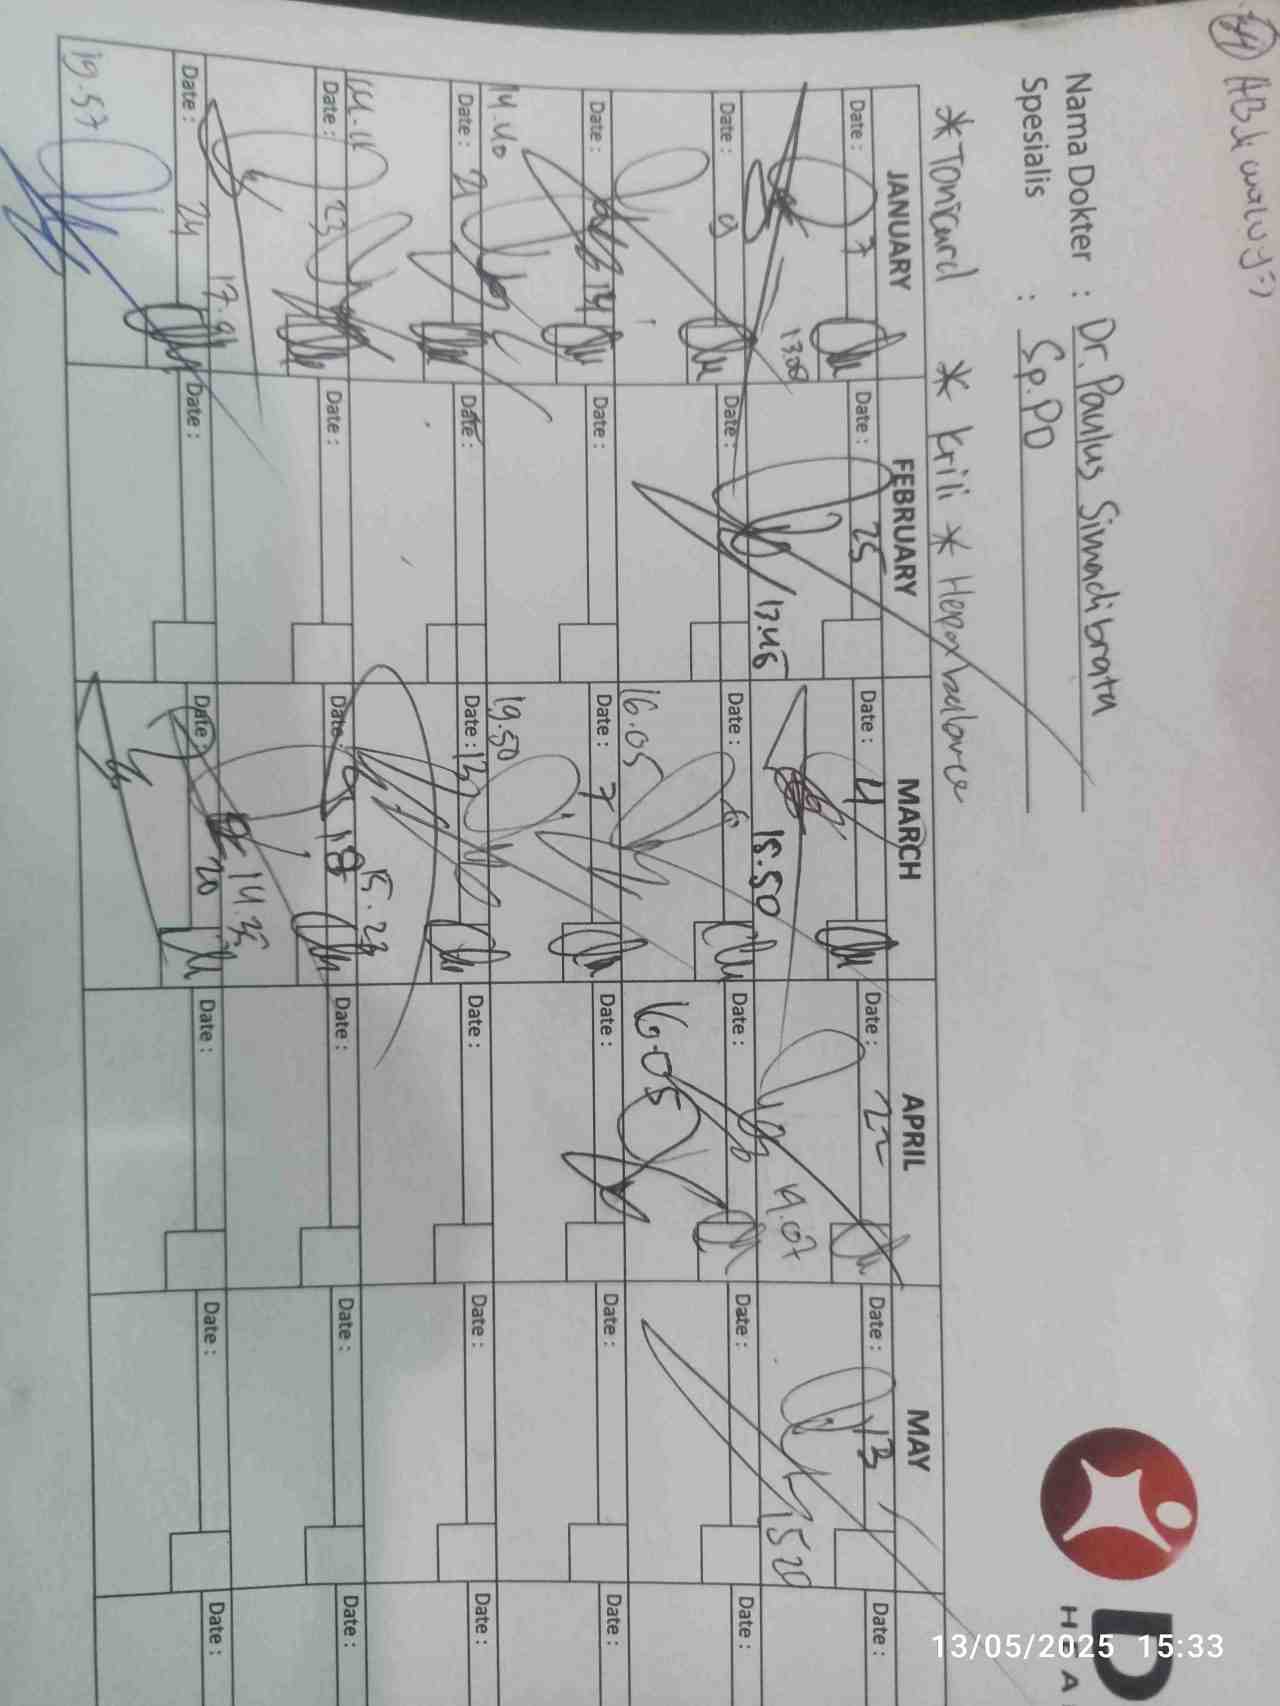 Nama Dokter : Dr. Paulus Simadibrata
Spesialis : Sp.PD
* Tonicard * Krili * Hepaxbalance
D
HEA
JANUARY FEBRUARY MARCH APRIL MAY
Date : 7 Date : 25 Date : 4 Date : 22 Date : 13 Date :
13.00 17.45 15.50 19.07 1520
Date : 9 Date : Date : 6 Date : Date : Date :
16.05 16.05
Date : 14 Date : Date : 7 Date : Date : Date :
14.40 19.50
Date : 21 Date : Date : 13 Date : Date : Date :
15.23
Date : 23 Date : Date : 18 Date : Date : Date :
14.35
Date : 24 Date : Date : 20 Date : Date : Date :
19.57
13/05/2025 15:33